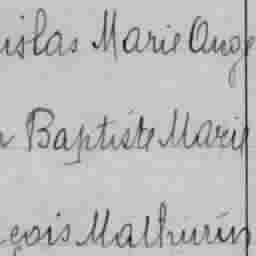 islas Marie Ange
Baptiste Marie
çois Mathurin